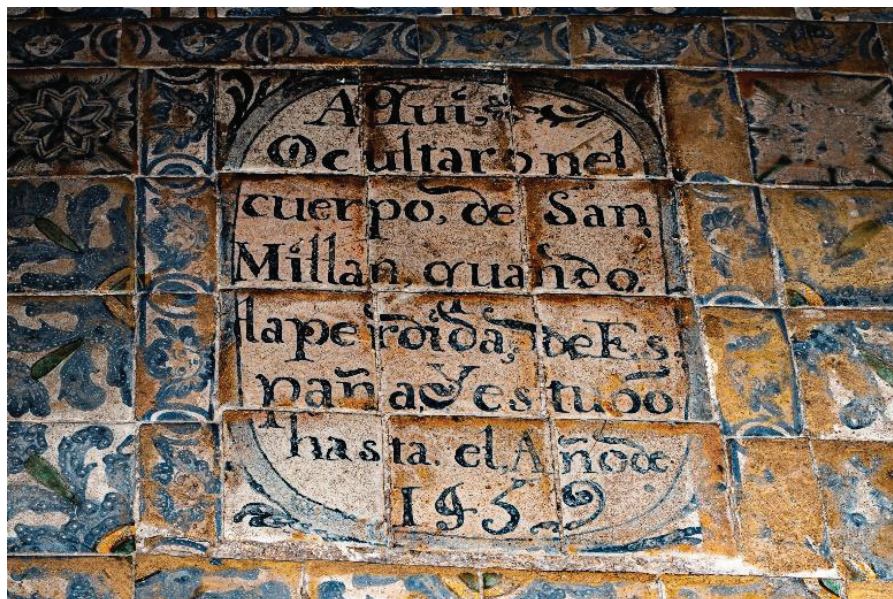 Aqui,
Ocultaron el
cuerpo, de San
Millan, quando,
la perdida, de Es
paña, Y estubo
hasta. el, Año de
1459